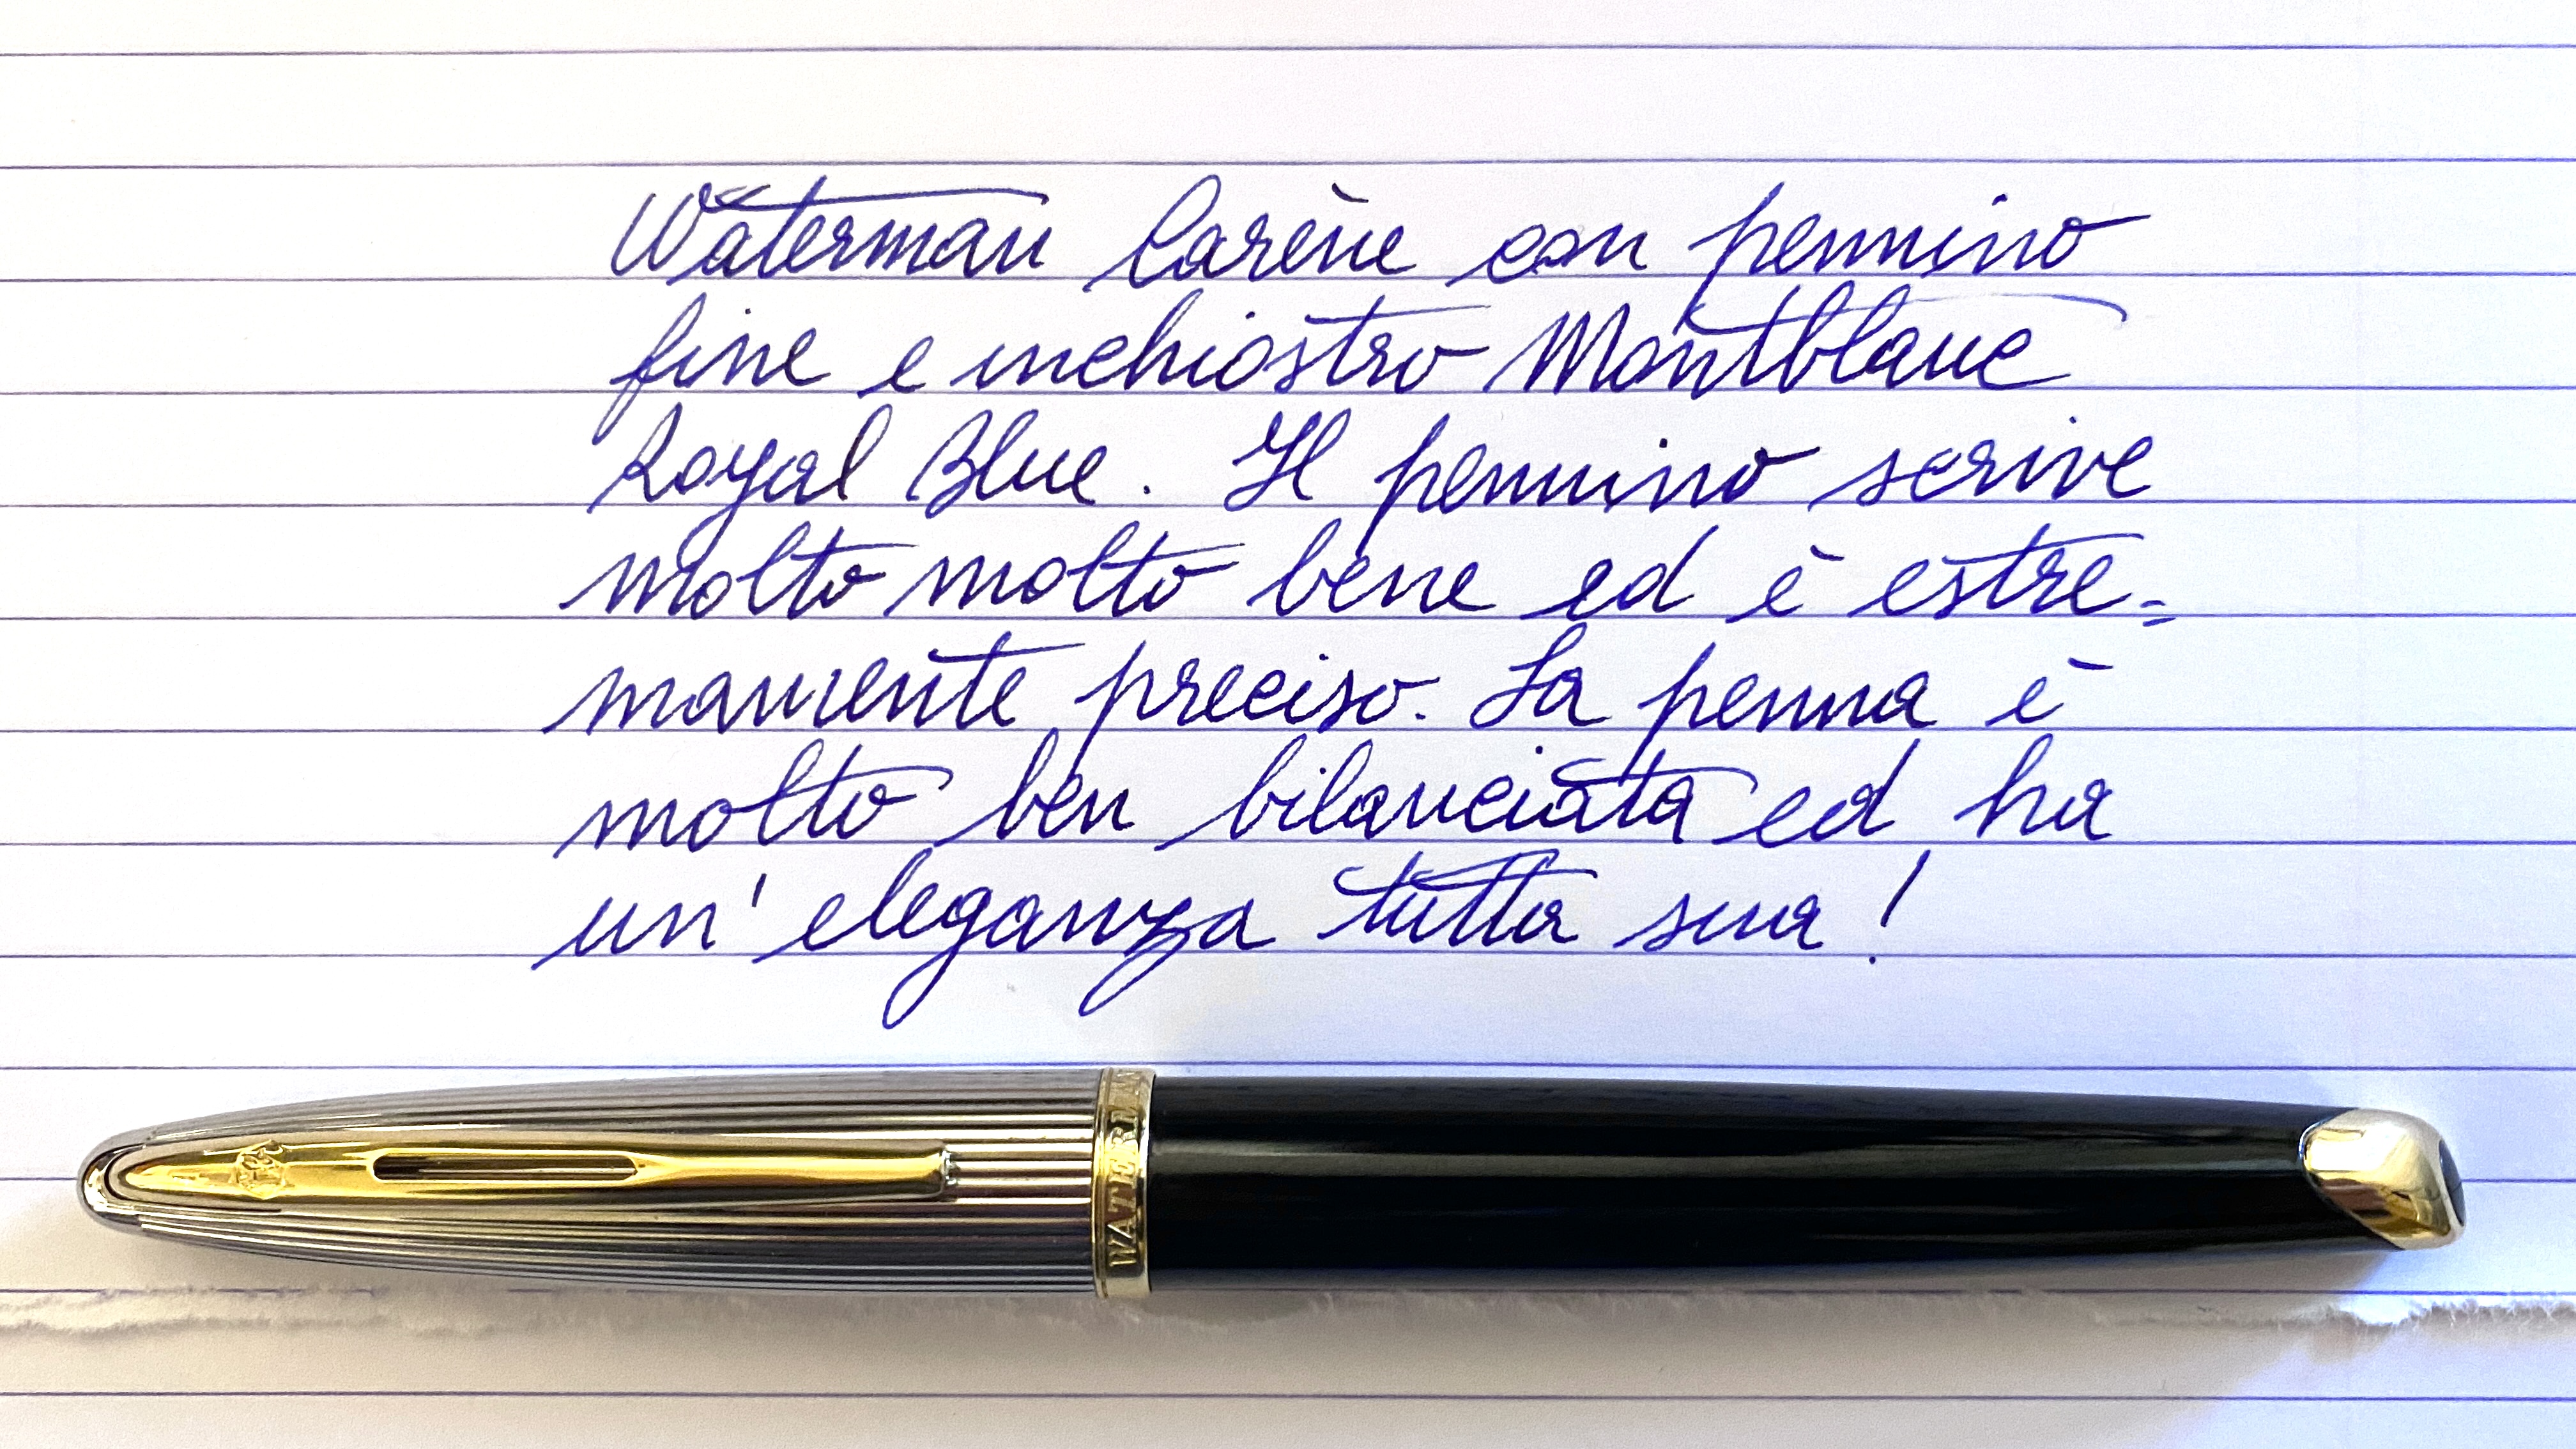 Waterman Carène con pennino
fine e inchiostro Montblanc
Royal Blue. Il pennino scrive
molto molto bene ed è estre=
mamente preciso. La penna è
molto ben bilanciata ed ha
un' eleganza tutta sua!
WATERMAN